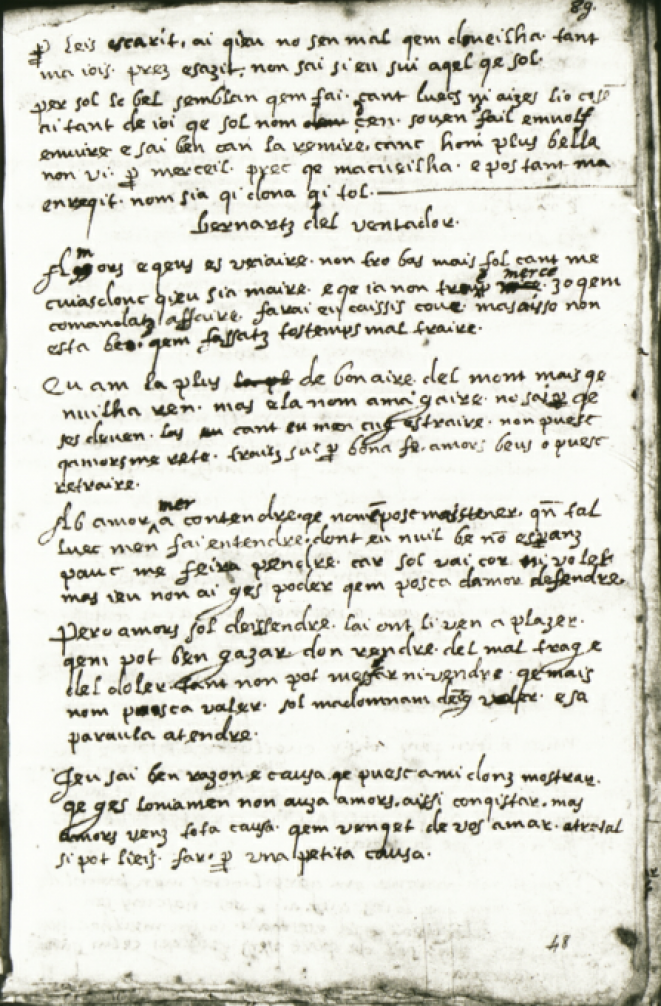 89.
p leis escarit, ai qieu no sen mal qem doueilha tant
ma iois. prez esazit, non sai si eu sui aqel qe sol.
per sol se bel semblan qem fai. cant luecs mi aizes lio
ai tant de ioi qe sol nom sen. souen fail emuolf
enuire e sai ben can la remire. canc hom plus bella
non vi. p merceil. prec qe macueilha. e pos tant ma
enreqit. nom sia qi dona qi tol.
bernartz del ventador.
Amors eqeus es veiaire. non tro bas mais fol cant me
cuiasdonc qieu sia maire. e qe ia non merce. zo qem
comandatz affaire. farai en caissis coue. mas aisso non
esta ben. qem fassatz tostemps mal traire.
Eu am la plus de bon aire. del mont mais qe
nuilha ren. mas ela nom ama gaire. no sai p qe
ses deuen. cant eu men cug estraire. non puesc
qamors me rete. traitz sui p bona fe. amors beus o puesc
retraire.
Ab amor mer a contendre. qe non post mais tener. qn tal
luec men fai entendre. dont eu nuil be no esperanz
pauc me feira pendre. car sol vai cor ni voler
mas ieu non ai ges poder qem posca damor defendre.
Pero amors sol deissendre. lai ont li ven a plazer.
qem pot ben gazardon rendre. del mal trag e
del doler. tant non pot mestar ni vendre. qe mais
nom puosca valer. sol madomnam valer. e sa
paraula atendre.
Jeu sai ben razon e causa. qe puesc a mi donz mostrar.
qe ges loniamen non auza amors. aissi conqistar. mas
amors venz tota causa. qem venqet de vos amar. atresal
si pot lieis. far. p una petita causa.
48